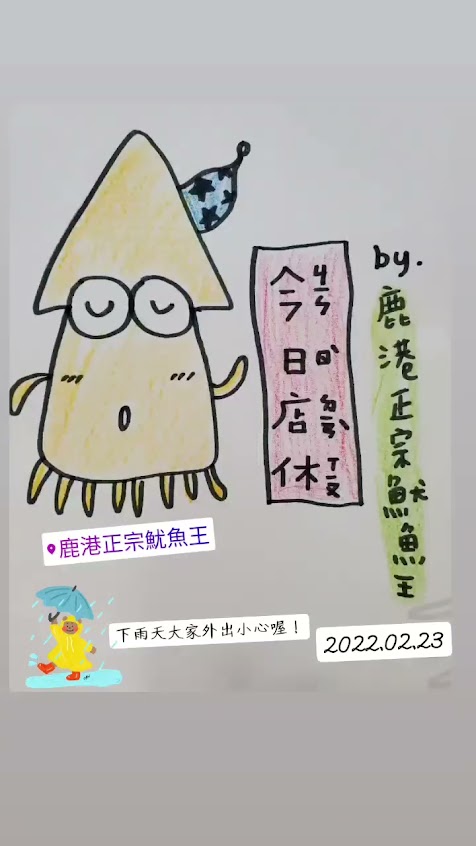 今日店休
by.
鹿港正宗魷魚王
鹿港正宗魷魚王
下雨天大家外出小心喔！
2022.02.23